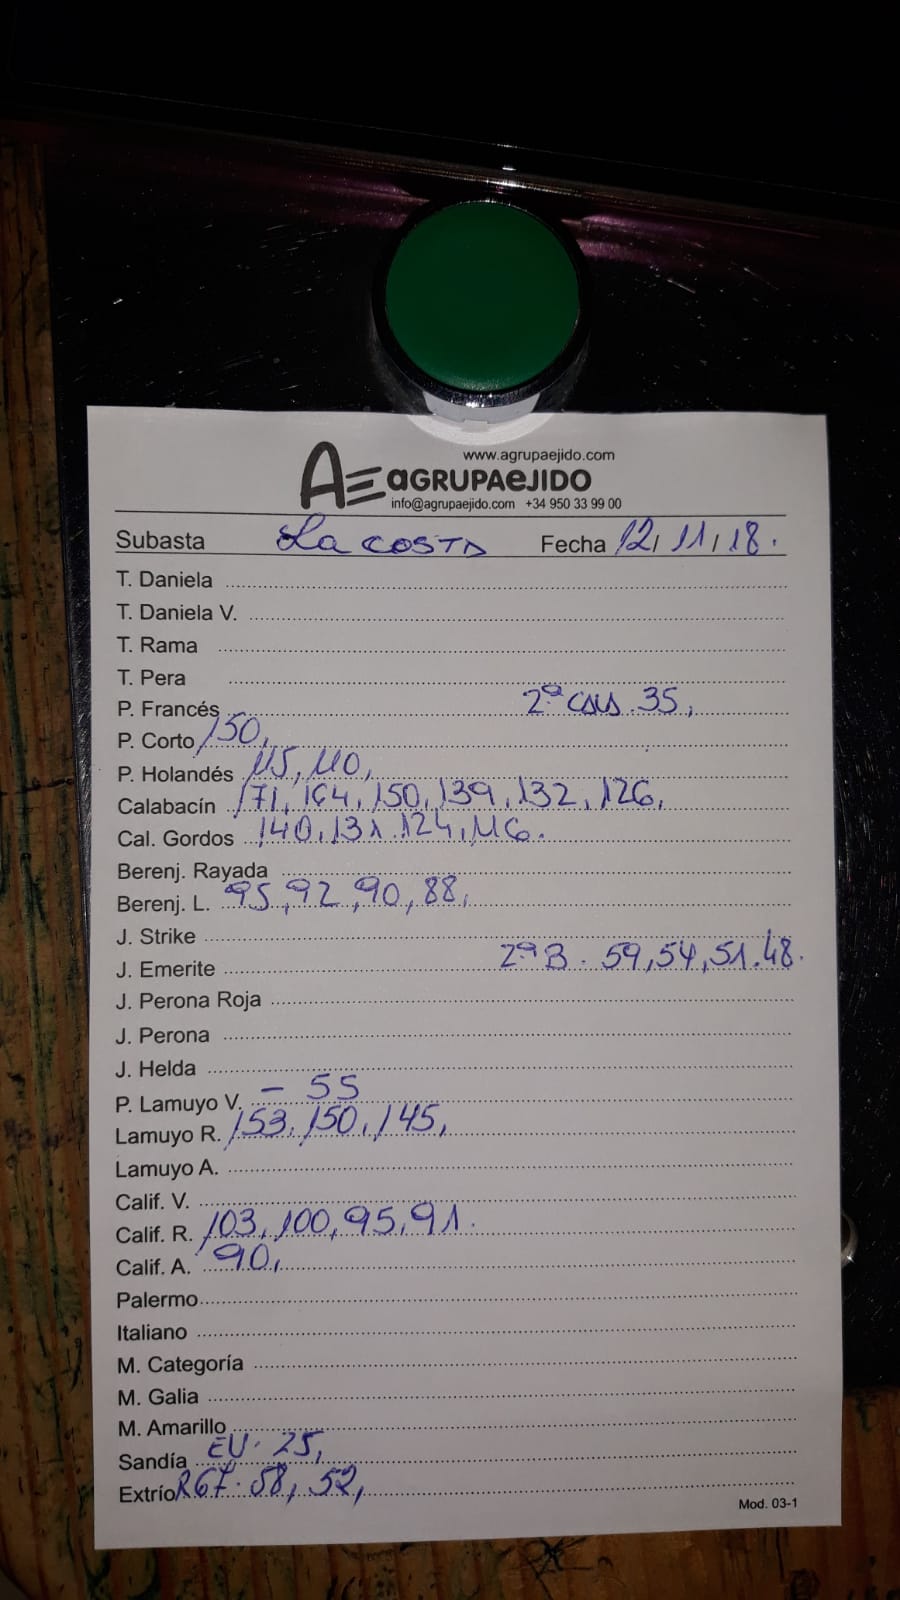 www.agrupaejido.com
AE aGRUPAeJIDO
info@agrupaejido.com +34 950 33 99 00
Subasta La COSTA Fecha 12, 11, 18.
T. Daniela
T. Daniela V.
T. Rama
T. Pera
P. Francés 2ª 35,
P. Corto 150,
P. Holandés 115, 110,
Calabacín 171, 164, 150, 139, 132, 126,
Cal. Gordos 140, 131. 124, 116.
Berenj. Rayada
Berenj. L. 95, 92, 90, 88,
J. Strike
J. Emerite 2ª B. 59, 54, 51. 48.
J. Perona Roja
J. Perona
J. Helda
P. Lamuyo V. - 55
Lamuyo R. 153, 150, 145,
Lamuyo A.
Calif. V.
Calif. R. 103, 100, 95, 91.
Calif. A. 90,
Palermo
Italiano
M. Categoría
M. Galia
M. Amarillo
Sandía EU. 25,
Extrío 58, 52,
Mod. 03-1